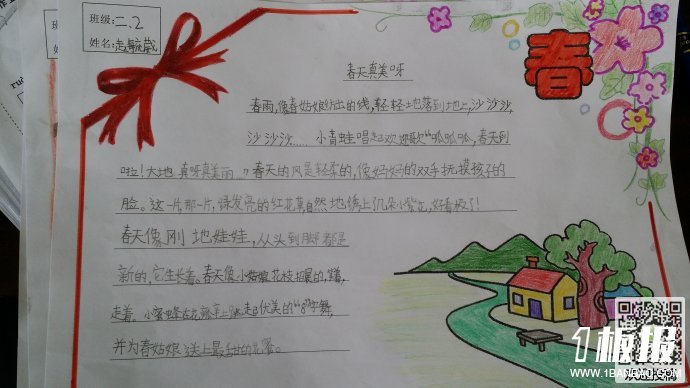 班级:二.2
姓名:
春
春天真美呀
春雨,像春姑娘纺出的线,轻轻地落到地上,沙沙沙,
沙沙沙……小青蛙唱起欢迎歌"呱呱呱,春天到
啦!大地真呀真美丽。"春天的风是轻柔的,像妈妈的双手抚摸孩子的
脸。这一片,那一片,绿发亮的红花草自然地绣上几朵小紫花,好看极了!
春天像刚 地娃娃,从头到脚都是
新的,它生长着。春天像小姑娘花枝招展的,
走着。小蜜蜂在花瓣上跳起优美的"8"字舞,
并为春姑娘送上最甜的花蜜。
1板报
WWW.1BANBAO.COM
欢迎投稿